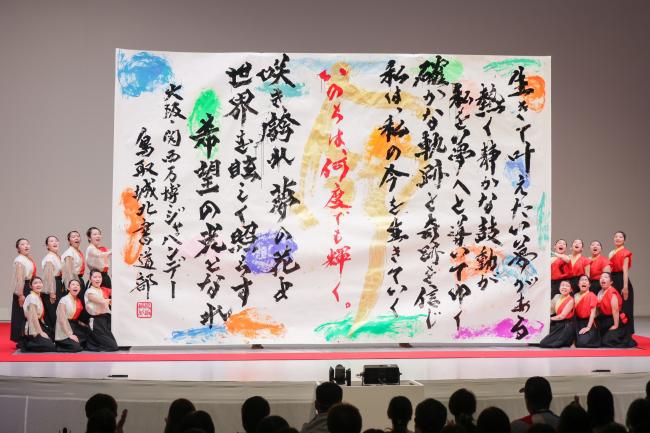 生きて叶えたい夢がある
熱く静かな鼓動が
私を夢へと導いてゆく
確かな軌跡と奇跡を信じ
私は、私の今を生きていく
いのちは、何度でも輝く。
咲き誇れ 夢の花よ
世界を眩しく照らす
希望の光となれ
大阪・関西万博ジャパンデー
鳥取城北書道部